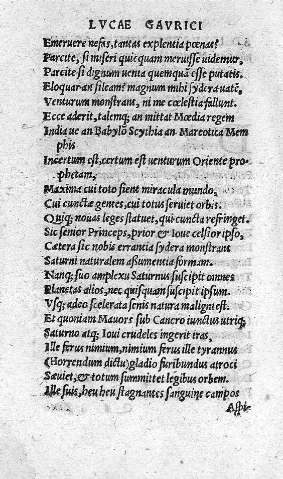 LVCAE GAVRICI
Emeruere nefas, tantas explentia poenas?
Parcite, si miseri quicquam meruisse uidemur,
Parcite si dignum uenia quemquã esse putatis.
Eloquar an sileam? magnum mihi sydera uatẽ,
Venturum monstrans, ni me coelestia fallunt.
Ecce aderit, talemq; an mittat Mœdia regem
India ue an Babylõ Scythia an Mareotica Mem
phis
Incertum est, certum est uenturum Oriente pro
phetam,
Maxima cui toto sient miracula mundo,
Cui cunctæ gentes, cui totus seruiet orbis.
Quiq; nouas leges statuet, qui cuncta refringet.
Sic senior Princeps, prior & Ioue celsior ipso,
Cætera sic nobis errantia sydera monstrant
Saturni naturalem assumentia formam.
Nanq; suo amplexu Saturnus suscipit omnes
Planetas alios, nec quisquam suscipit ipsum.
Vsq; adeo scelerata senis natura maligni est.
Et quoniam Mauors sub Cancro iunctus utriq;
Saturno atq; Ioui crudeles ingerit iras,
Ille ferus nimium, nimium ferus ille tyrannus
(Horrendum dictu) gladio furibundus atroci
Sæuiet, & totum summittet legibus orbem.
Ille suis, heu heu stagnantes sanguine campos
Aspi-